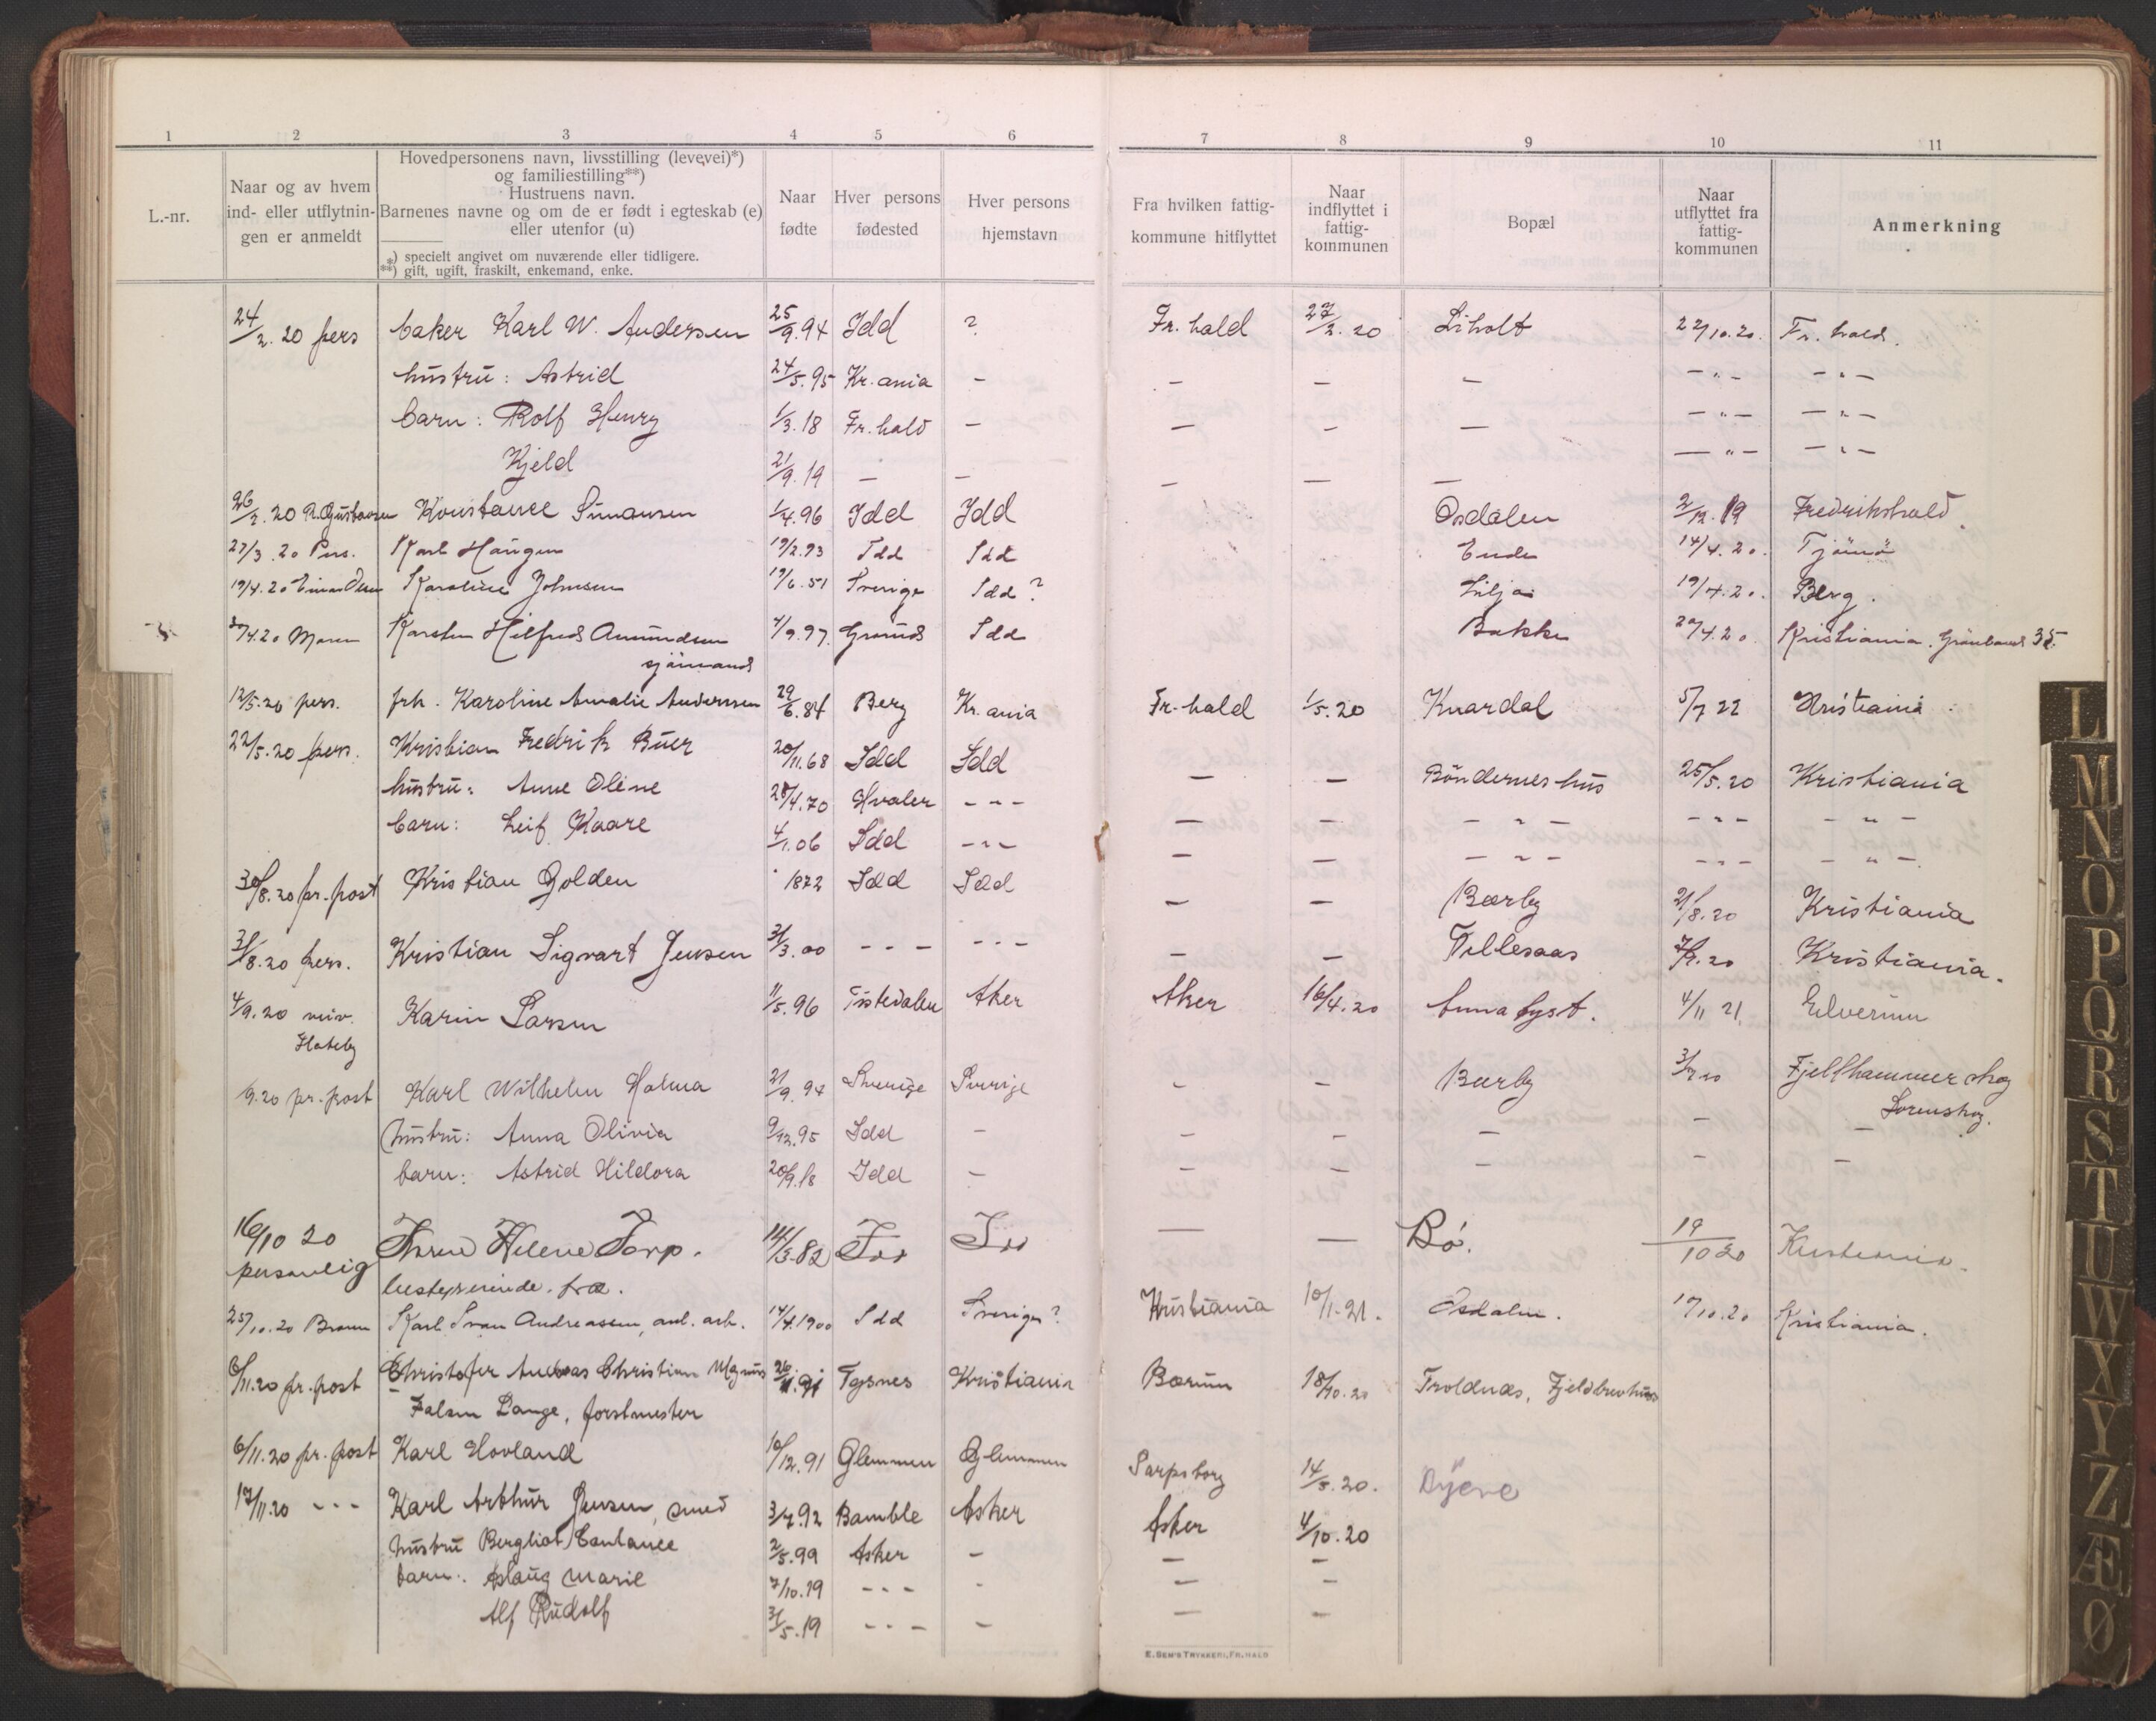 1 2 3 4 5 6 7 8 9 10 11
L.-nr.
Naar og av hvem
ind- eller utflytnin-
gen er anmeldt
Hovedpersonens navn, livsstilling (levevei)*)
og familiestilling**)
Hustruens navn.
Barnenes navne og om de er født i egteskab (e)
eller utenfor (u)
*) specielt angivet om nuværende eller tidligere.
**) gift, ugift, fraskilt, enkemand, enke.
Naar
fødte
Hver persons
fødested
Hver persons
hjemstavn
Fra hvilken fattig-
kommune hitflyttet
Naar
indflyttet i
fattig-
kommunen
Bopæl
Naar
utflyttet fra
fattig-
kommunen
Anmerkning
24/2. 20 pers baker Karl W. Andersen 25/9.94 Idd ? Fr. hald 27/2. 20 Liholt 22/10.20. Fr. hald.
hustru: Astrid 24/5.95 Kr.ania - - - - - " - - " -
barn: Rolf Henry 1/3.18 Fr. hald - - - - - " - - " -
Kjeld 21/9.19 - - - - - - " - - " -
26/2. 20 R. Gustavsen Konstance Simansen 1/4.96 Idd Idd Osdalen 2/12.19 Fredrikshald.
27/3. 20 Pers. Karl Haugen 19/2.93 Idd Idd Ende 14/4.20. Tjömö
19/4.20 Einar Olsen Karoline Johnsen 19/6.51 Sverige Idd? Lilja 19/4.20. Berg.
30/4.20 Moren Karsten Hilfred Amundsen 4/9.97. Grimds Idd Bakke 29/4.20 Kristiania. Grönland 35.
sjömand
12/5.20 pers. frk. Karoline Amalie Andersen 29/6.84 Berg Kr.ania Fr. hald 1/5.20 Knardal 5/7 22 Kristiania.
22/5.20 pers. Kristian Fredrik Buer 20/11.68 Idd Idd - - Böndernes hus 25/5.20 Kristiania
hustru: Anne Oline 28/4.70 Hvaler - " - - - - " - - " - - " -
barn: Leif Kaare 4/1.06 Idd - " - - - - " - - " - - " -
30/8.20 pr. post Kristian Golden 1872 Idd Idd - - Bærby 21/8.20 Kristiania
31/8.20 pers. Kristian Sigvart Jensen 31/3.00 - " - - " - - - Tillesaas 7/9.20 Kristiania.
4/9.20 Karin Larsen 11/5.96 Tistedalen Aker Aker 16/4.20 Anna Lyst. 4/11 21. Elverum
Flateby
9.20 pr. post Karl Wilhelm Holma 21/9.94 Sverige Sverige - - Bærby 3/9.20 Fjellhammer skog
Lørenskog.
hustru: Anna Olivia 9/12.95 Idd - - - - - -
barn: Astrid Hildora 20/9.18 Idd - - - - - -
16/10 20 Helene Torp. 14/3.82 Idd Idd - - Bö. 19/10 20 Kristiania.
personlig bestyrerinde.
25/10.20 Karl Ivan Andreassen, anl. arb. 14/4.1900 Idd Sverige? Kristiania 10/1.21. Osdalen. 17/10.20 Kristiania.
6/11.20 pr. post Christofer Andreas Christian Magnus 26/11.91 Tysnes Kristiania Bærum 18/10.20 Troldnæs, Fjeldbrevhus
Falsen Lange, forstmester
6/11.20 pr. post Karl Hovland 10/12.91 Glemmen Glemmen Sarpsborg 14/5.20. Dyene
17/11.20 - " - Karl Arthur Jensen, smed 3/7.92 Bamble Asker Asker 4/10.20
hustru Bergliot Constance 2/5.99 Asker - - -
barn: Aslaug Marie 7/10.19 - " - - - -
Alf Rudolf 31/5.19 - " - - - -
E. SEM'S TRYKKERI, FR.HALD
L
M
N
O
P
Q
R
S
T
U
W
X
Y
Z
Æ
Ø